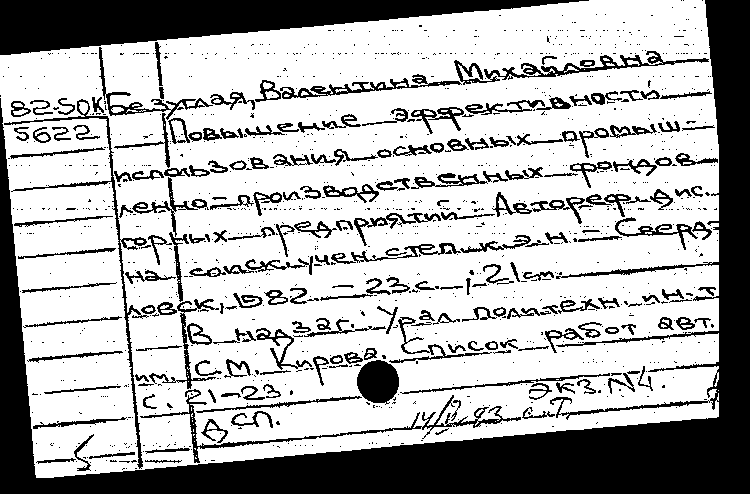 82-5OK Безуглая, Валентина Михайловна
5622 Повышение эффективности
использования основных промыш-
ленно-производственных фондов
горных предприятий : Автореф. дис.
на соиск. учен. степ. к. э. н. - Сверд-
ловск, 1982. - 23 с. ; 21 см.
В надзаг.: Урал. политехн. ин.т
им. С.М. Кирова. Список работ авт.
с. 21-23. экз. N4.
ДСП. 14/II 83